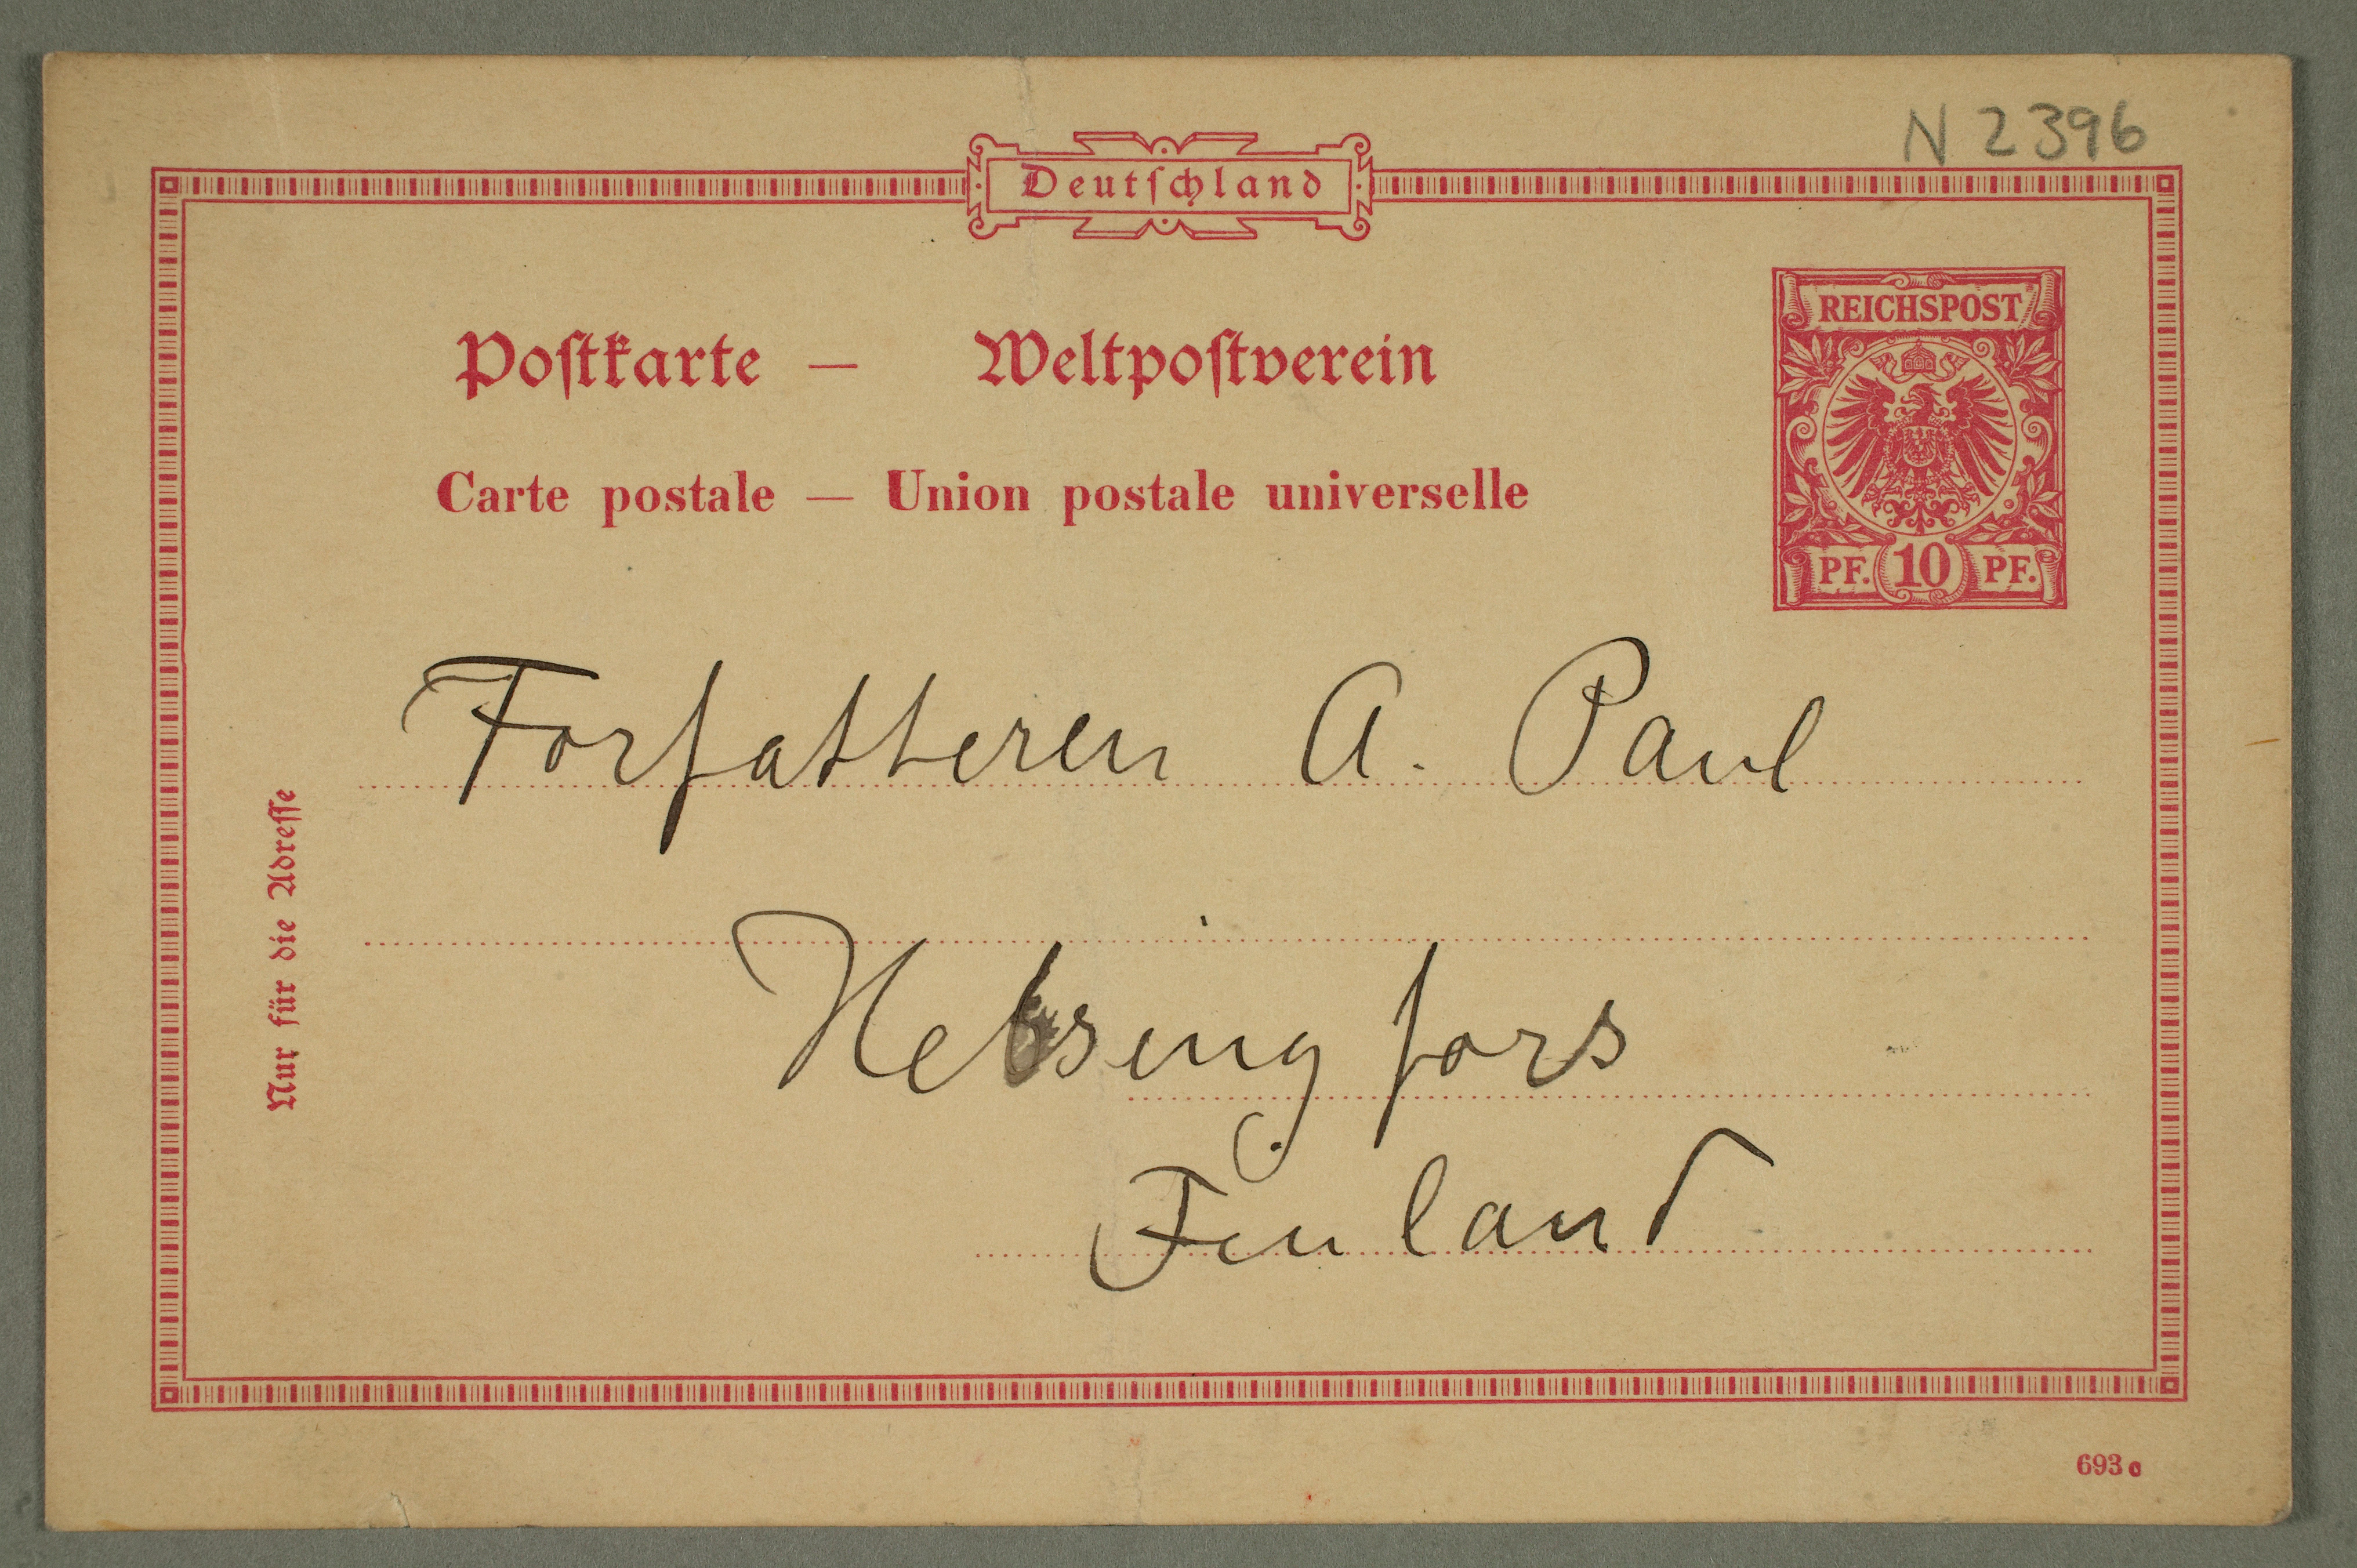 N 2396
Deutschland
REICHSPOST
Postkarte — Weltpostverein
Carte postale — Union postale universelle
PF. 10 PF.
Forfatteren A. Paul
Nur für die Adresse
Helsingfors
Finland
693 c